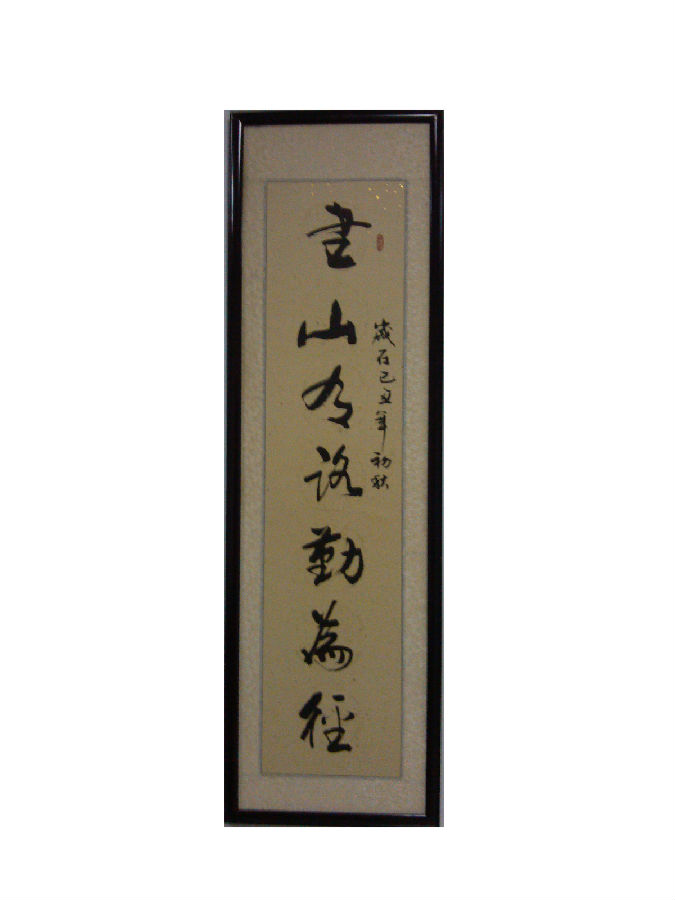 歲在己丑年初秋
書山有路勤為徑